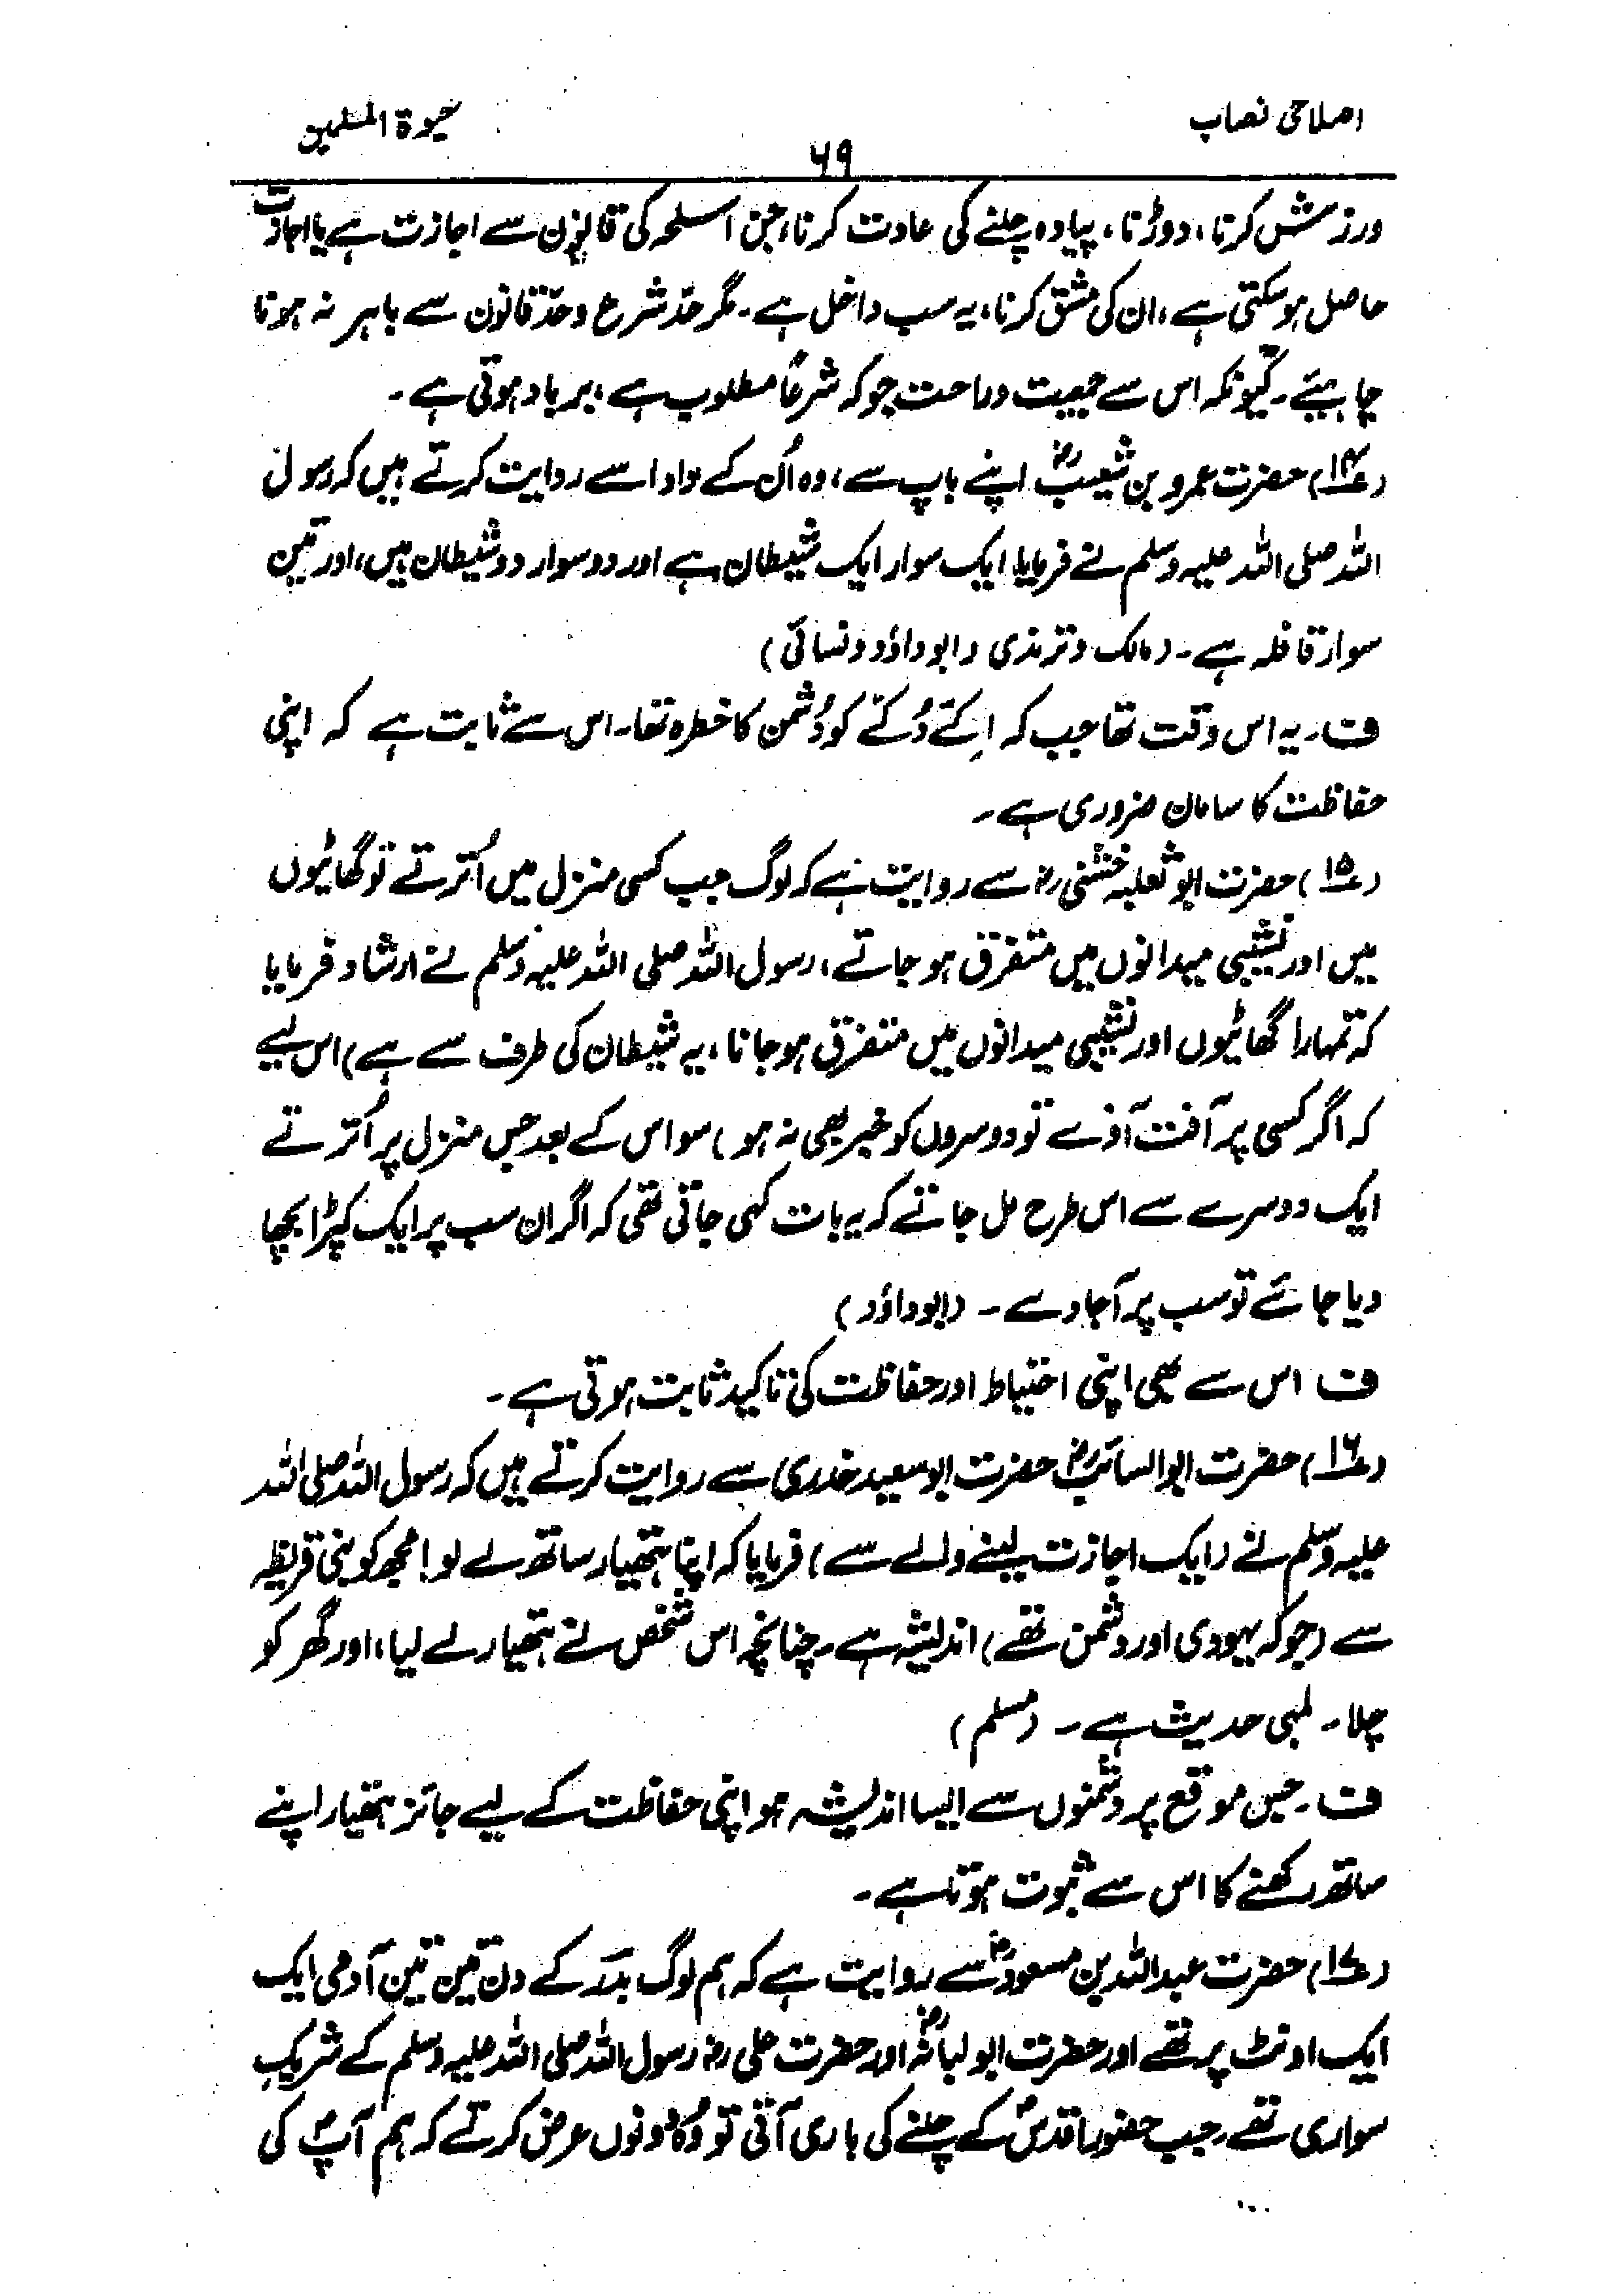 اصلاحی نصاب
حیوۃ المسلمین
۶۹
ورزش کرنا، دوڑنا، پیادہ چلنے کی عادت کرنا، جن اسلحہ کی قانون سے اجازت ہے یا اجازت
حاصل ہو سکتی ہے، ان کی مشق کرنا، یہ سب داخل ہے۔ مگر حدّ شرع و حدّ قانون سے باہر نہ ہونا
چاہیئے۔ کیونکہ اس سے جمعیت و راحت جو کہ شرعًا مطلوب ہے، برباد ہوتی ہے۔
(۱۴) حضرت عمرو بن شعیبؓ اپنے باپ سے، وہ اُن کے دادا سے روایت کرتے ہیں کہ رسول
اللہ صلی اللہ علیہ وسلم نے فرمایا، ایک سوار ایک شیطان ہے اور دو سوار دو شیطان ہیں، اور تین
سوار قافلہ ہے۔ (مالک و ترمذی و ابوداؤد و نسائی)
ف۔ یہ اس وقت تھا جب کہ اِکّے دُکّے کو دُشمن کا خطرہ تھا۔ اس سے ثابت ہے کہ اپنی
حفاظت کا سامان ضروری ہے۔
(۱۵) حضرت ابو ثعلبہ خشنی رض سے روایت ہے کہ لوگ جب کسی منزل میں اُترتے تو گھاٹیوں
میں اور نشیبی میدانوں میں متفرق ہو جاتے، رسول اللہ صلی اللہ علیہ وسلم نے ارشاد فرمایا
کہ تمہارا گھاٹیوں اور نشیبی میدانوں میں متفرق ہو جانا، یہ شیطان کی طرف سے ہے (اس لیے
کہ اگر کسی پر آفت آوے تو دوسروں کو خبر بھی نہ ہو) سو اس کے بعد جس منزل پر اُترتے
ایک دوسرے سے اس طرح مل جاتے کہ یہ بات کہی جاتی تھی کہ اگر ان سب پر ایک کپڑا بچھا
دیا جائے تو سب پر آجاوے۔ (ابوداؤد)
ف اس سے بھی اپنی احتیاط اور حفاظت کی تاکید ثابت ہوتی ہے۔
(۱۶) حضرت ابوالسائبؓ حضرت ابو سعید خدری سے روایت کرتے ہیں کہ رسول اللہ صلی اللہ
علیہ وسلم نے (ایک اجازت لینے والے سے) فرمایا کہ اپنا ہتھیار ساتھ لے لو! مجھ کو بنی قریظہ
سے (جو کہ یہودی اور دشمن تھے) اندیشہ ہے۔ چنانچہ اس شخص نے ہتھیار لے لیا، اور گھر کو
چلا۔ لمبی حدیث ہے۔ (مسلم)
ف۔ جس موقع پر دشمنوں سے ایسا اندیشہ ہو اپنی حفاظت کے لیے جائز ہتھیار اپنے
ساتھ رکھنے کا اس سے ثبوت ہوتا ہے۔
(۱۷) حضرت عبداللہ بن مسعودؓ سے روایت ہے کہ ہم لوگ بدر کے دن تین تین آدمی ایک
ایک اونٹ پر تھے اور حضرت ابو لبابہؓ اور حضرت علی رض رسول اللہ صلی اللہ علیہ وسلم کے شریکِ
سواری تھے۔ جب حضور اقدسؐ کے چلنے کی باری آتی تو وُہ دونوں عرض کرتے کہ ہم آپؐ کی